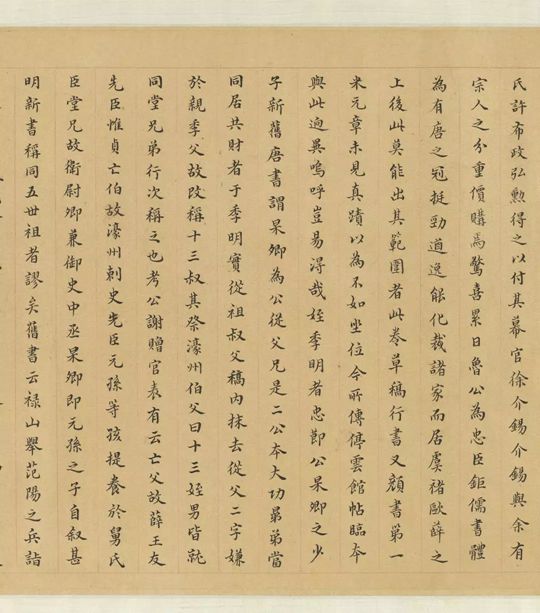 氏許布政弘勲得之以付其幕官徐介錫介錫與余有
宗人之分重價購焉驚喜累日魯公為忠臣鉅儒書體
為有唐之冠挺勁遒逸能化裁諸家而居虞褚歐薛之
上後此莫能出其範圍者此卷草稿行書又顔書第一
米元章未見真蹟以為不如坐位今所傳停雲館帖臨本
與此逈異嗚呼豈易得哉姪季明者忠節公杲卿之少
子新舊唐書謂杲卿為公從父兄是二公本大功昆弟當
同居共財者于季明實從祖叔父稿內抹去從父二字嫌
於親季父故改稱十三叔其祭濠州伯父曰十三姪男皆統
同堂兄弟行次稱之也考公謝贈官表有云亡父故薛王友
先臣惟貞亡伯故濠州刺史先臣元孫等孩提養於舅氏
臣堂兄故衛尉卿兼御史中丞杲卿即元孫之子自叙甚
明新書稱同五世祖者謬矣舊書云祿山舉范陽之兵詣